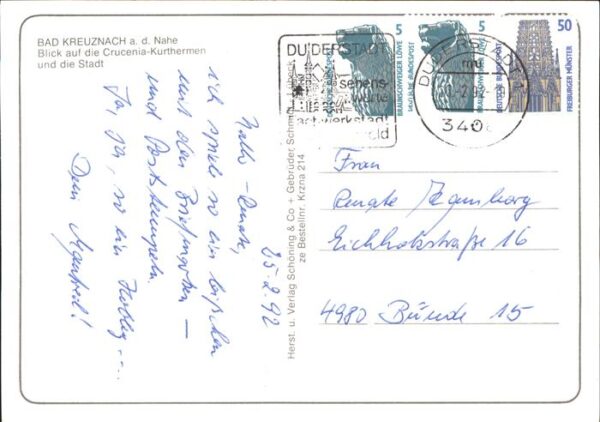 BAD KREUZNACH a. d. Nahe
Blick auf die Crucenia-Kurthermen
und die Stadt
Hallo - Renate,
ich spiele so ein bißchen
mit den Briefmarken —
und Poststempeln.
Ja, ja, so ein Hobby ....
Dein Manfred!
25.2.92
Herst. u. Verlag Schöning & Co + Gebrüder Schmidt
ze Bestellnr. Krzna 214
DUDERSTADT
sehens-
werte
5
DEUTSCHE BUNDESPOST
BRAUNSCHWEIGER LÖWE
5
DEUTSCHE BUNDESPOST
BRAUNSCHWEIGER LÖWE
50
DEUTSCHE BUNDESPOST
FREIBURGER MÜNSTER
DUDERSTADT
2.92
3408
Frau
Renate
Eichholzstraße 16
4980 Bünde 15